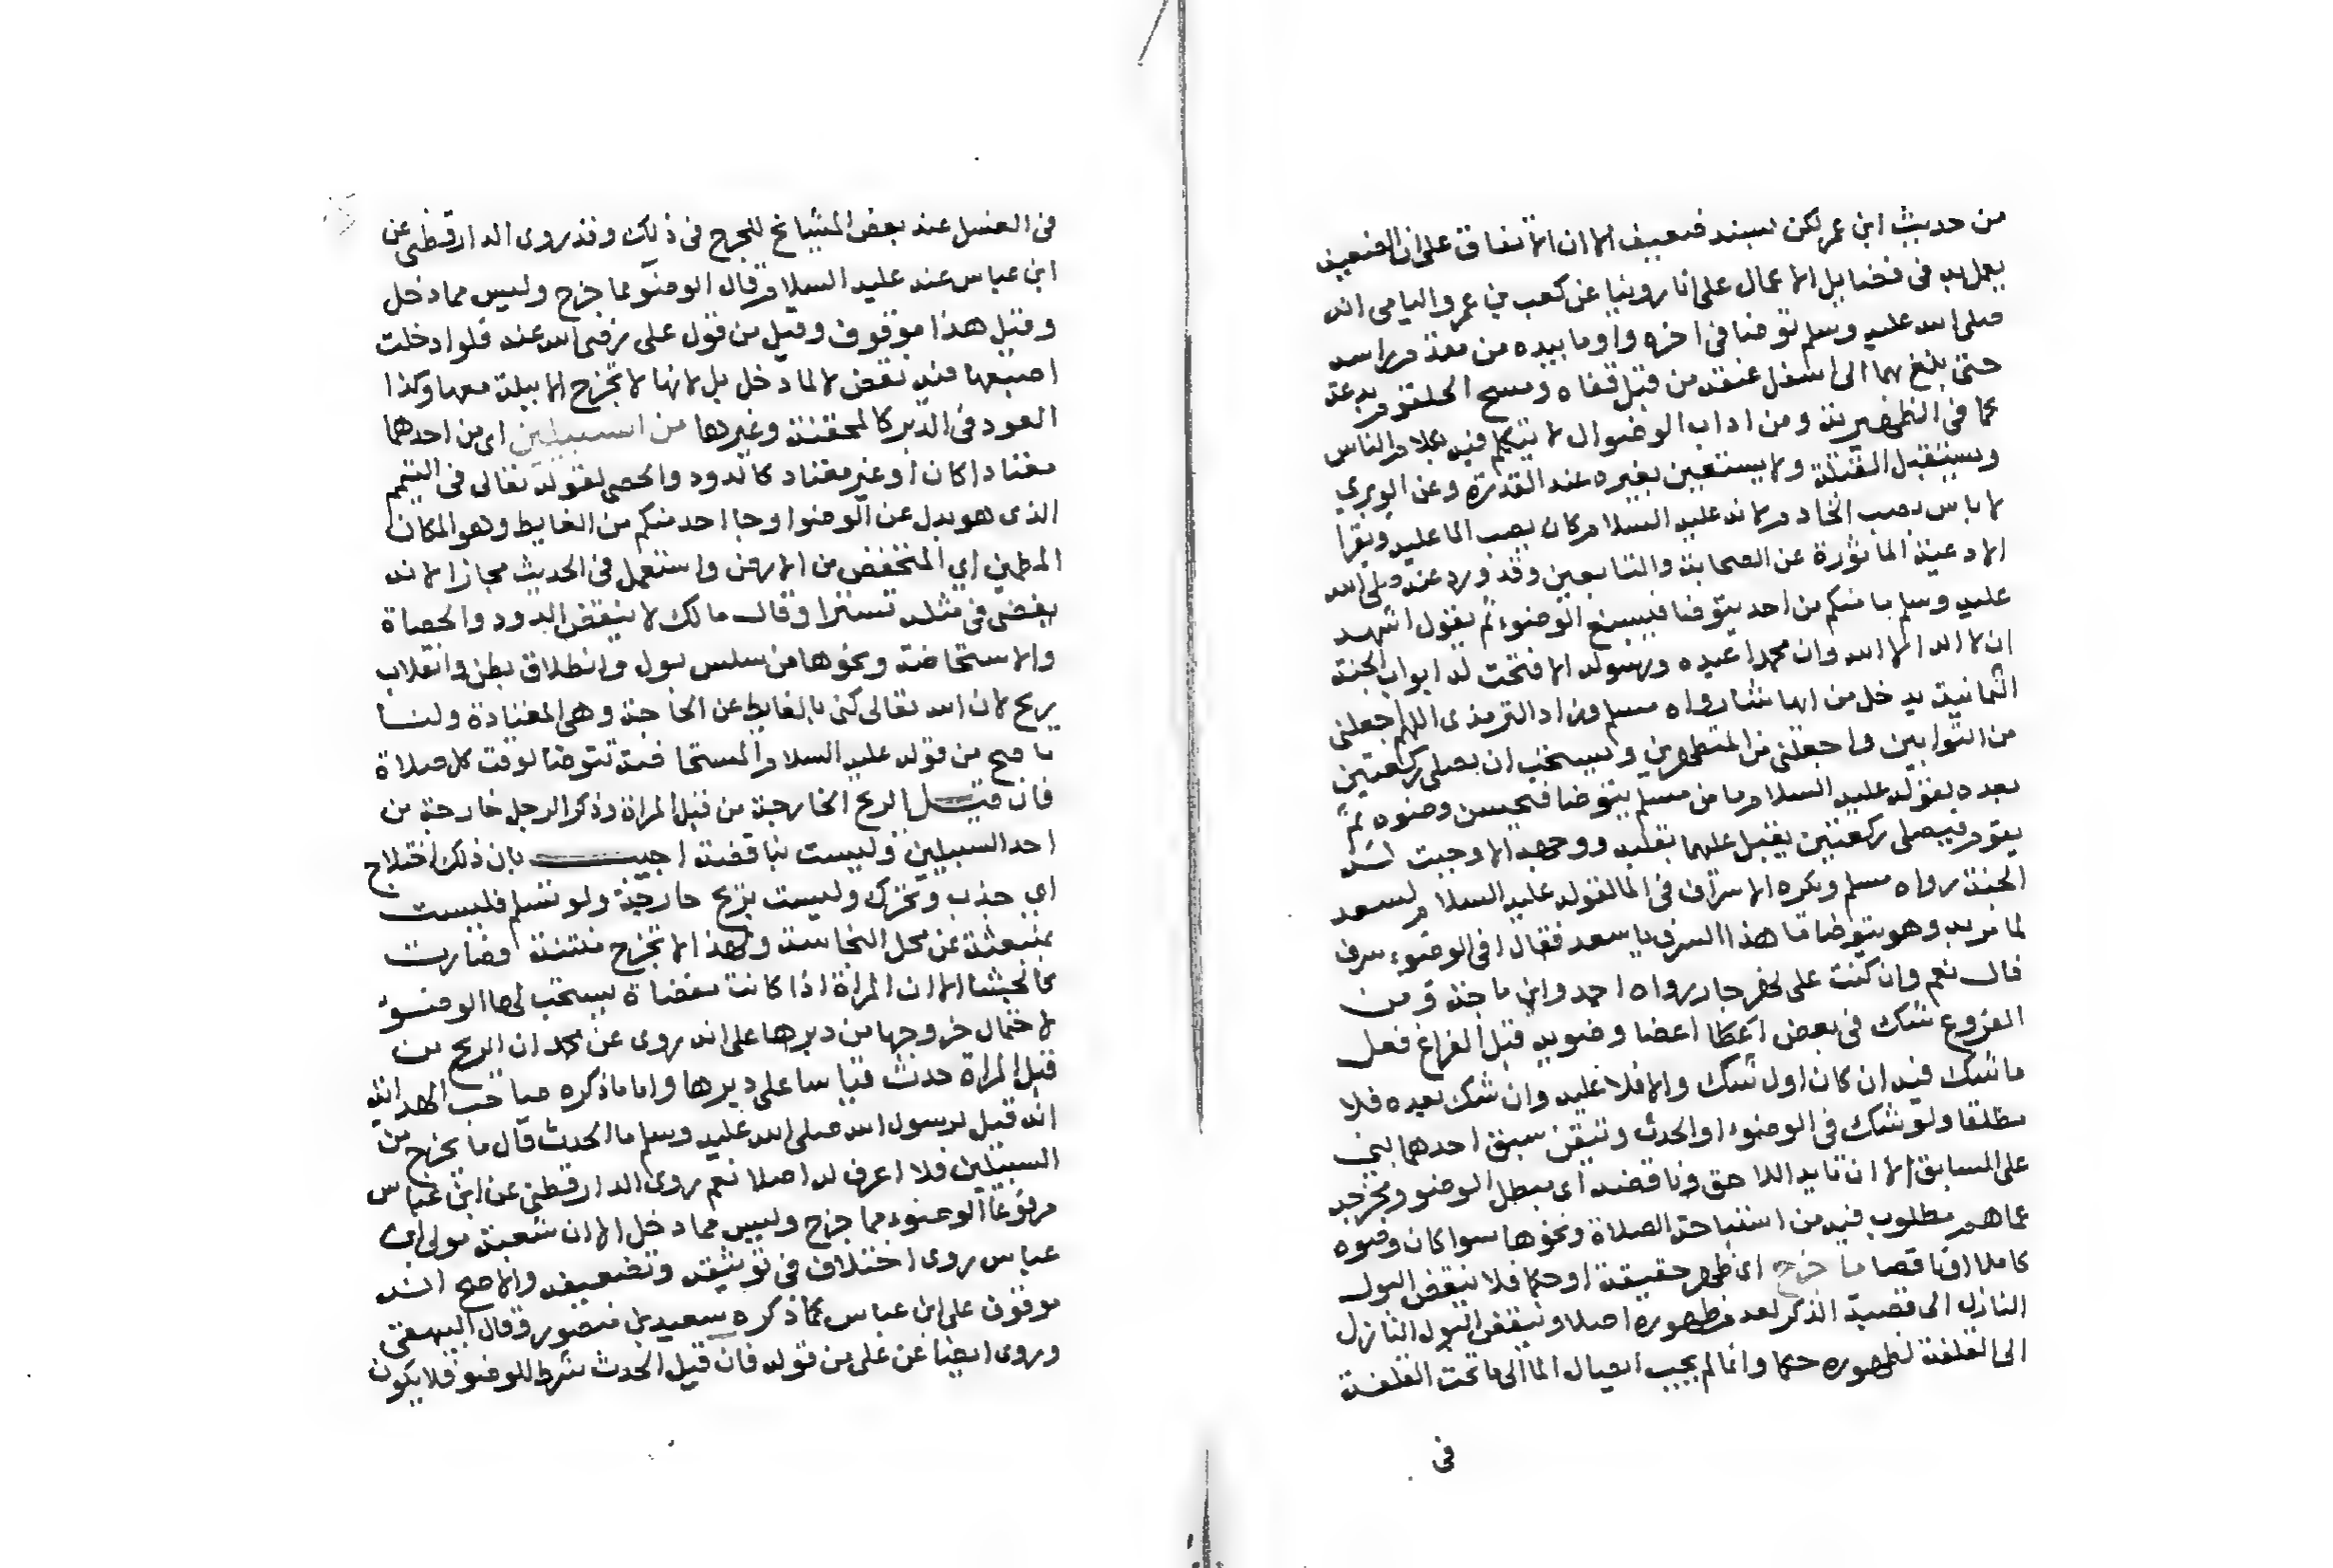 من حديث ابن عمر لكن بسند ضعيف الا ان الاتفاق على ان الضعيف
يعمل به في فضايل الاعمال على انا روينا عن كعب بن عمرو اليامى انه
صلى الله عليه وسلم توضا في اخره واوما بيده من مقدم راسه
حتى بلغ بهما الى اسفل عنقه من قبل قفاه ومسح الحلقوم بدعة
كما في الظهيرية ومن اداب الوضوء ان لا يتكلم فيه بكلام الناس
ويستقبل القبلة ولا يستعين بغيره عند القدرة وعن الوبري
لا باس بصب الخادم لانه عليه السلام كان يصب الما عليه ويقرا
الادعية الماثورة عن الصحابة والتابعين وقد ورد عنه صلى الله
عليه وسلم ما منكم من احد يتوضا فيسبغ الوضوء ثم يقول اشهد
ان لا اله الا الله وان محمدا عبده ورسوله الا فتحت له ابواب الجنة
الثمانية يدخل من ايها شا رواه مسلم وزاد الترمذى اللهم اجعلني
من التوابين واجعلني من المتطهرين ويستحب ان يصلى ركعتين
بعده لقوله عليه السلام ما من مسلم يتوضا فيحسن وضوه ثم
يقوم فيصلى ركعتين يقبل عليهما بقلبه ووجهه الا وجبت له
الجنة رواه مسلم ويكره الاسراف في الما لقوله عليه السلام لسعد
لما مر به وهو يتوضا ما هذا السرف يا سعد فقال افي الوضوء سرف
قال نعم وان كنت على نهر جار رواه احمد وابن ماجة ومن
الفروع شك في بعض اعضا وضويه قبل الفراغ فعل
ما شك فيه ان كان اول شك والا فلا عليه وان شك بعده فلا
مطلقا ولو شك في الوضوء او الحدث وتيقن سبق احدهما بنى
على السابق الا ان تايد اللاحق وناقضه اى مبطل الوضو ومخرجه
عما هو مطلوب فيه من استباحة الصلاة ونحوها سوا كان وضوه
كاملا او ناقصا ما خرج اى ظهر حقيقة او حكما فلا ينقض البول
النازل الى قصبة الذكر لعدم ظهوره اصلا وينقض البول النازل
الى القلفة لظهوره حكما وانما لم يجب ايصال الما الى ما تحت القلفة
في
في الغسل عند بعض المشايخ للحرج في ذلك وقد روى الدارقطني عن
ابن عباس عنه عليه السلام قال الوضوء مما خرج وليس مما دخل
وقيل هذا موقوف وقيل من قول على رضى الله عنه فلو ادخلت
اصبعها فيه نقض لا لما دخل بل لانها لا تخرج الا ببلة معها وكذا
العود في الدبر كالمحقنة وغيرها من السبيلين اى من احدهما
معتادا كان او غير معتاد كالدود والحصى لقوله تعالى في التيمم
الذى هو بدل عن الوضوء او جا احد منكم من الغايط وهو المكان
المطمين اي المنخفض من الارض واستعمل في الحديث مجازا لانه
يقضى في مثله تسترا وقال مالك لا ينقض الدود والحصاة
والاستحاضة ونحوها من سلس بول وانطلاق بطن وانفلات
ريح لان الله تعالى كنى بالغايط عن الحاجة وهي المعتادة ولنا
ما صح من قوله عليه السلام المستحاضة تتوضا لوقت كل صلاة
فان قيل الريح الخارجة من قبل المراة وذكر الرجل خارجة من
احد السبيلين وليست بناقضة اجيب بان ذلك اختلاج
اي جذب وتحرك وليست بريح خارجة ولو نسلم فليست
بمنبعثة عن محل النجاسة ولهذا لا تخرج منتنة فصارت
كالجشا الا ان المراة اذا كانت مفضاة يستحب لها الوضو
لاحتمال خروجها من دبرها على انه روى عن محمد ان الريح من
قبل المراة حدث قياسا على دبرها واما ما ذكره صاحب الهداية
انه قيل لرسول الله صلى الله عليه وسلم ما الحدث قال ما يخرج من
السبيلين فلا اعرف له اصلا نعم روى الدارقطني عن ابن عباس
مرفوعا الوضوء مما خرج وليس مما دخل الا ان شعبة مولى ابن
عباس روى اختلاف في توثيقه وتضعيفه والاصح انه
موقوف على ابن عباس كما ذكره سعيد بن منصور وقال البيهقى
وروى ايضا عن على من قوله فان قيل الحدث شرط للوضو فلا يكون